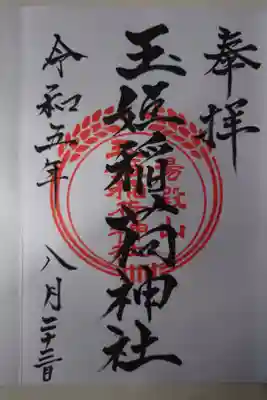 奉拝
玉姫稲荷神社
令和五年
八月二十三日